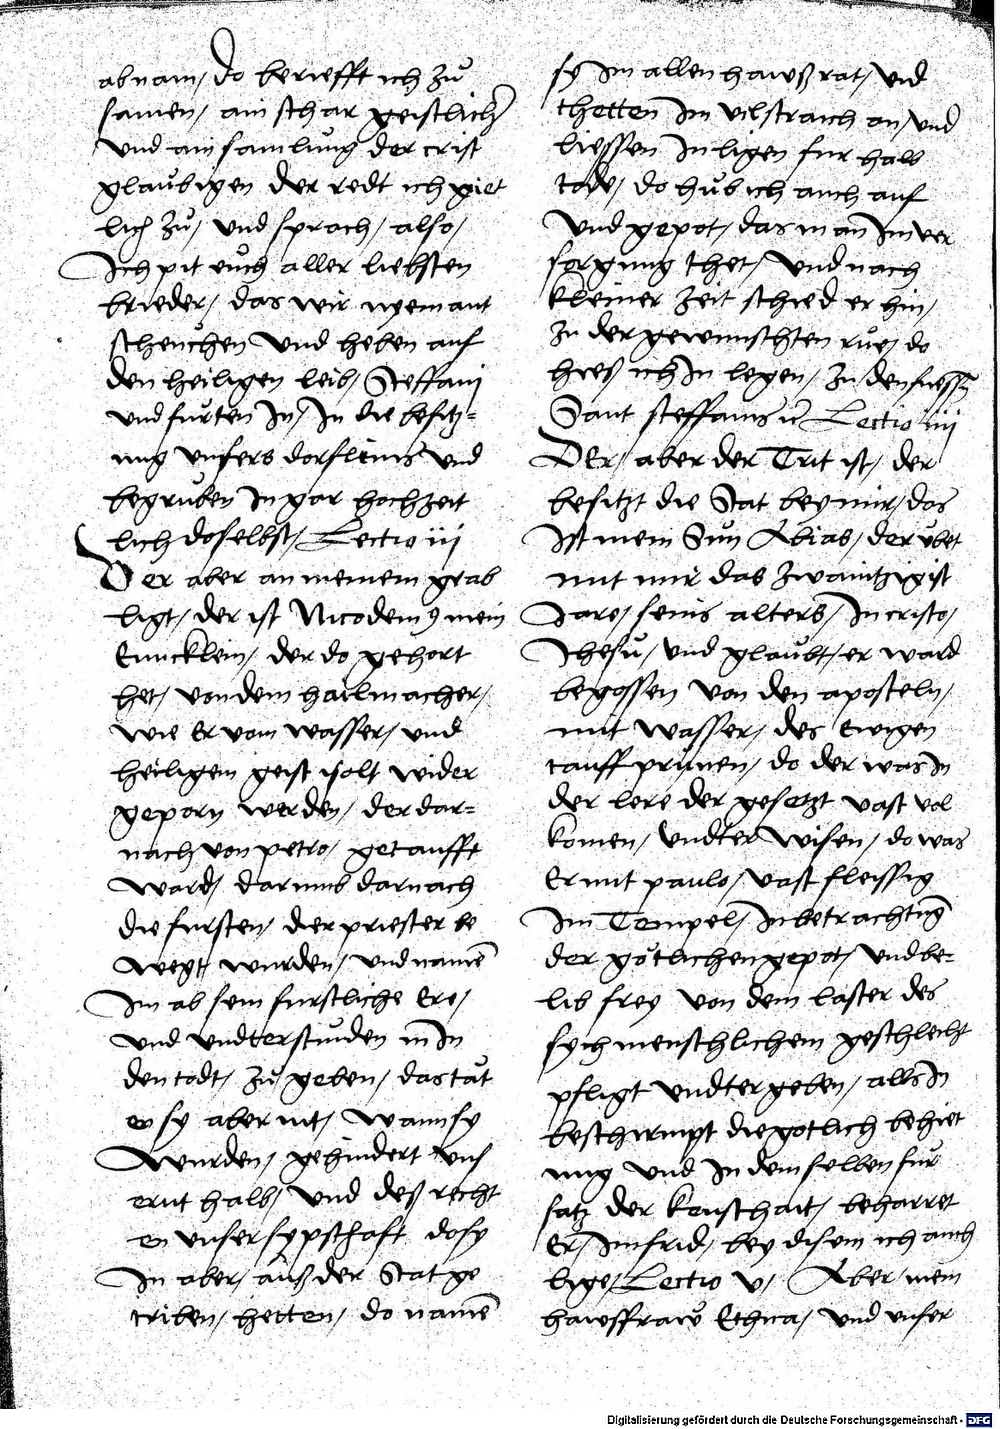 abnam, do beriefft ich zů
samen, ain schar geistlich
und ain samlung der crist
glaubigen der redt ich giet
lich zů, und sprach, also,
Ich pit euch aller liebsten
brieder, das wir nyemant
scheuchen und heben auf
den heiligen leib, Steffani
und furten In, In die besitz=
ung unsers dorfleins und
begruben In gar hochzeit
lich doselbst, Lectio iij
Der aber an meinem grab
ligt, der ist Nicodem9 mein
Enncklein, der do gehort
het, von dem hailmacher,
wie Er vom wasser, und
heiligem geist solt wider
geporn werden, der dar=
nach von petro, getaufft
ward, darumb darnach
die fursten, der priester be
wegt wurden, und namē
Im ab sein furstliche Ere,
und undterstunden In
den todt, zů geben, das tät
en sy aber nit, wann sy
wurden, gehindert uns
ernt halb, und deß recht
en unser sypschaft do sy
In aber, auß der Stat ge
triben, hetten, do namē
sy Im allen hawßrat, und
thetten Im vil straich an, und
liessen In ligen fur halb
tode, do hůb ich auch auf
und gepot, das man In ver
sorgung thet, und nach
kleiner zeit schied er hin,
zu der gewunschten rue, do
hieß ich In legen, zu den fuessen
Sant steffanns Lectio iiij
DEr, aber der Trit ist, der
besitzt die Stat bey mir, das
Ist mein Sun Abias, der ubet
mit mir das zwaintzigist
Jare, seins alters, In cristo,
Jhesu, und glaubt, er ward
begossen von den aposteln,
mit wasser, des Ewigen
tauff prunen, do der was In
der lere der gesetzt vast vol
komen, undter wisen, do was
Er mit paulo, vast fleissig
Im Tempel, In betrachtūg
der götlichen gepot, und be=
lib frey von dem laster des
sych menschlichem geschlecht
pfligt undtergeben, alls In
beschirmpt die gotlich behiet
ung und In dem selben fur
satz der keuschait, beharret
Er, Im frid, bey disem ich auch
lige, Lectio v, Aber mein
hawsfraw Ethna, und unser
Digitalisierung gefördert durch die Deutsche Forschungsgemeinschaft - DFG